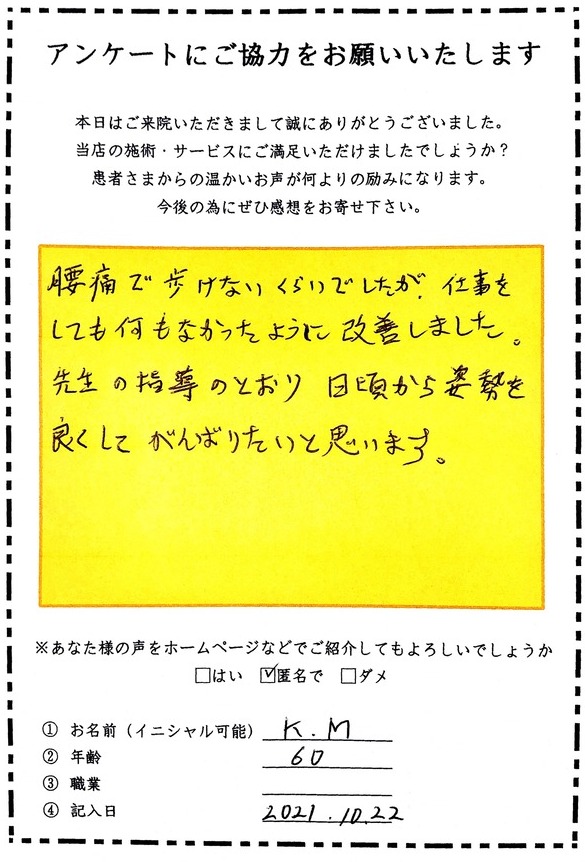 アンケートにご協力をお願いいたします
本日はご来院いただきまして誠にありがとうございました。
当店の施術・サービスにご満足いただけましたでしょうか？
患者さまからの温かいお声が何よりの励みになります。
今後の為にぜひ感想をお寄せ下さい。
腰痛で歩けないくらいでしたが、仕事を
しても何もなかったように改善しました。
先生の指導のとおり 日頃から姿勢を
良くして がんばりたいと思います。
※あなた様の声をホームページなどでご紹介してもよろしいでしょうか
□はい ☑匿名で □ダメ
① お名前（イニシャル可能） K.M
② 年齢 60
③ 職業
④ 記入日 2021.10.22